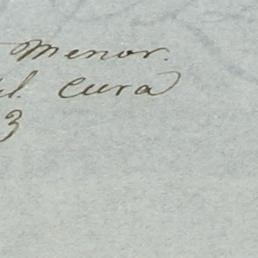 Menor.
Cura
3